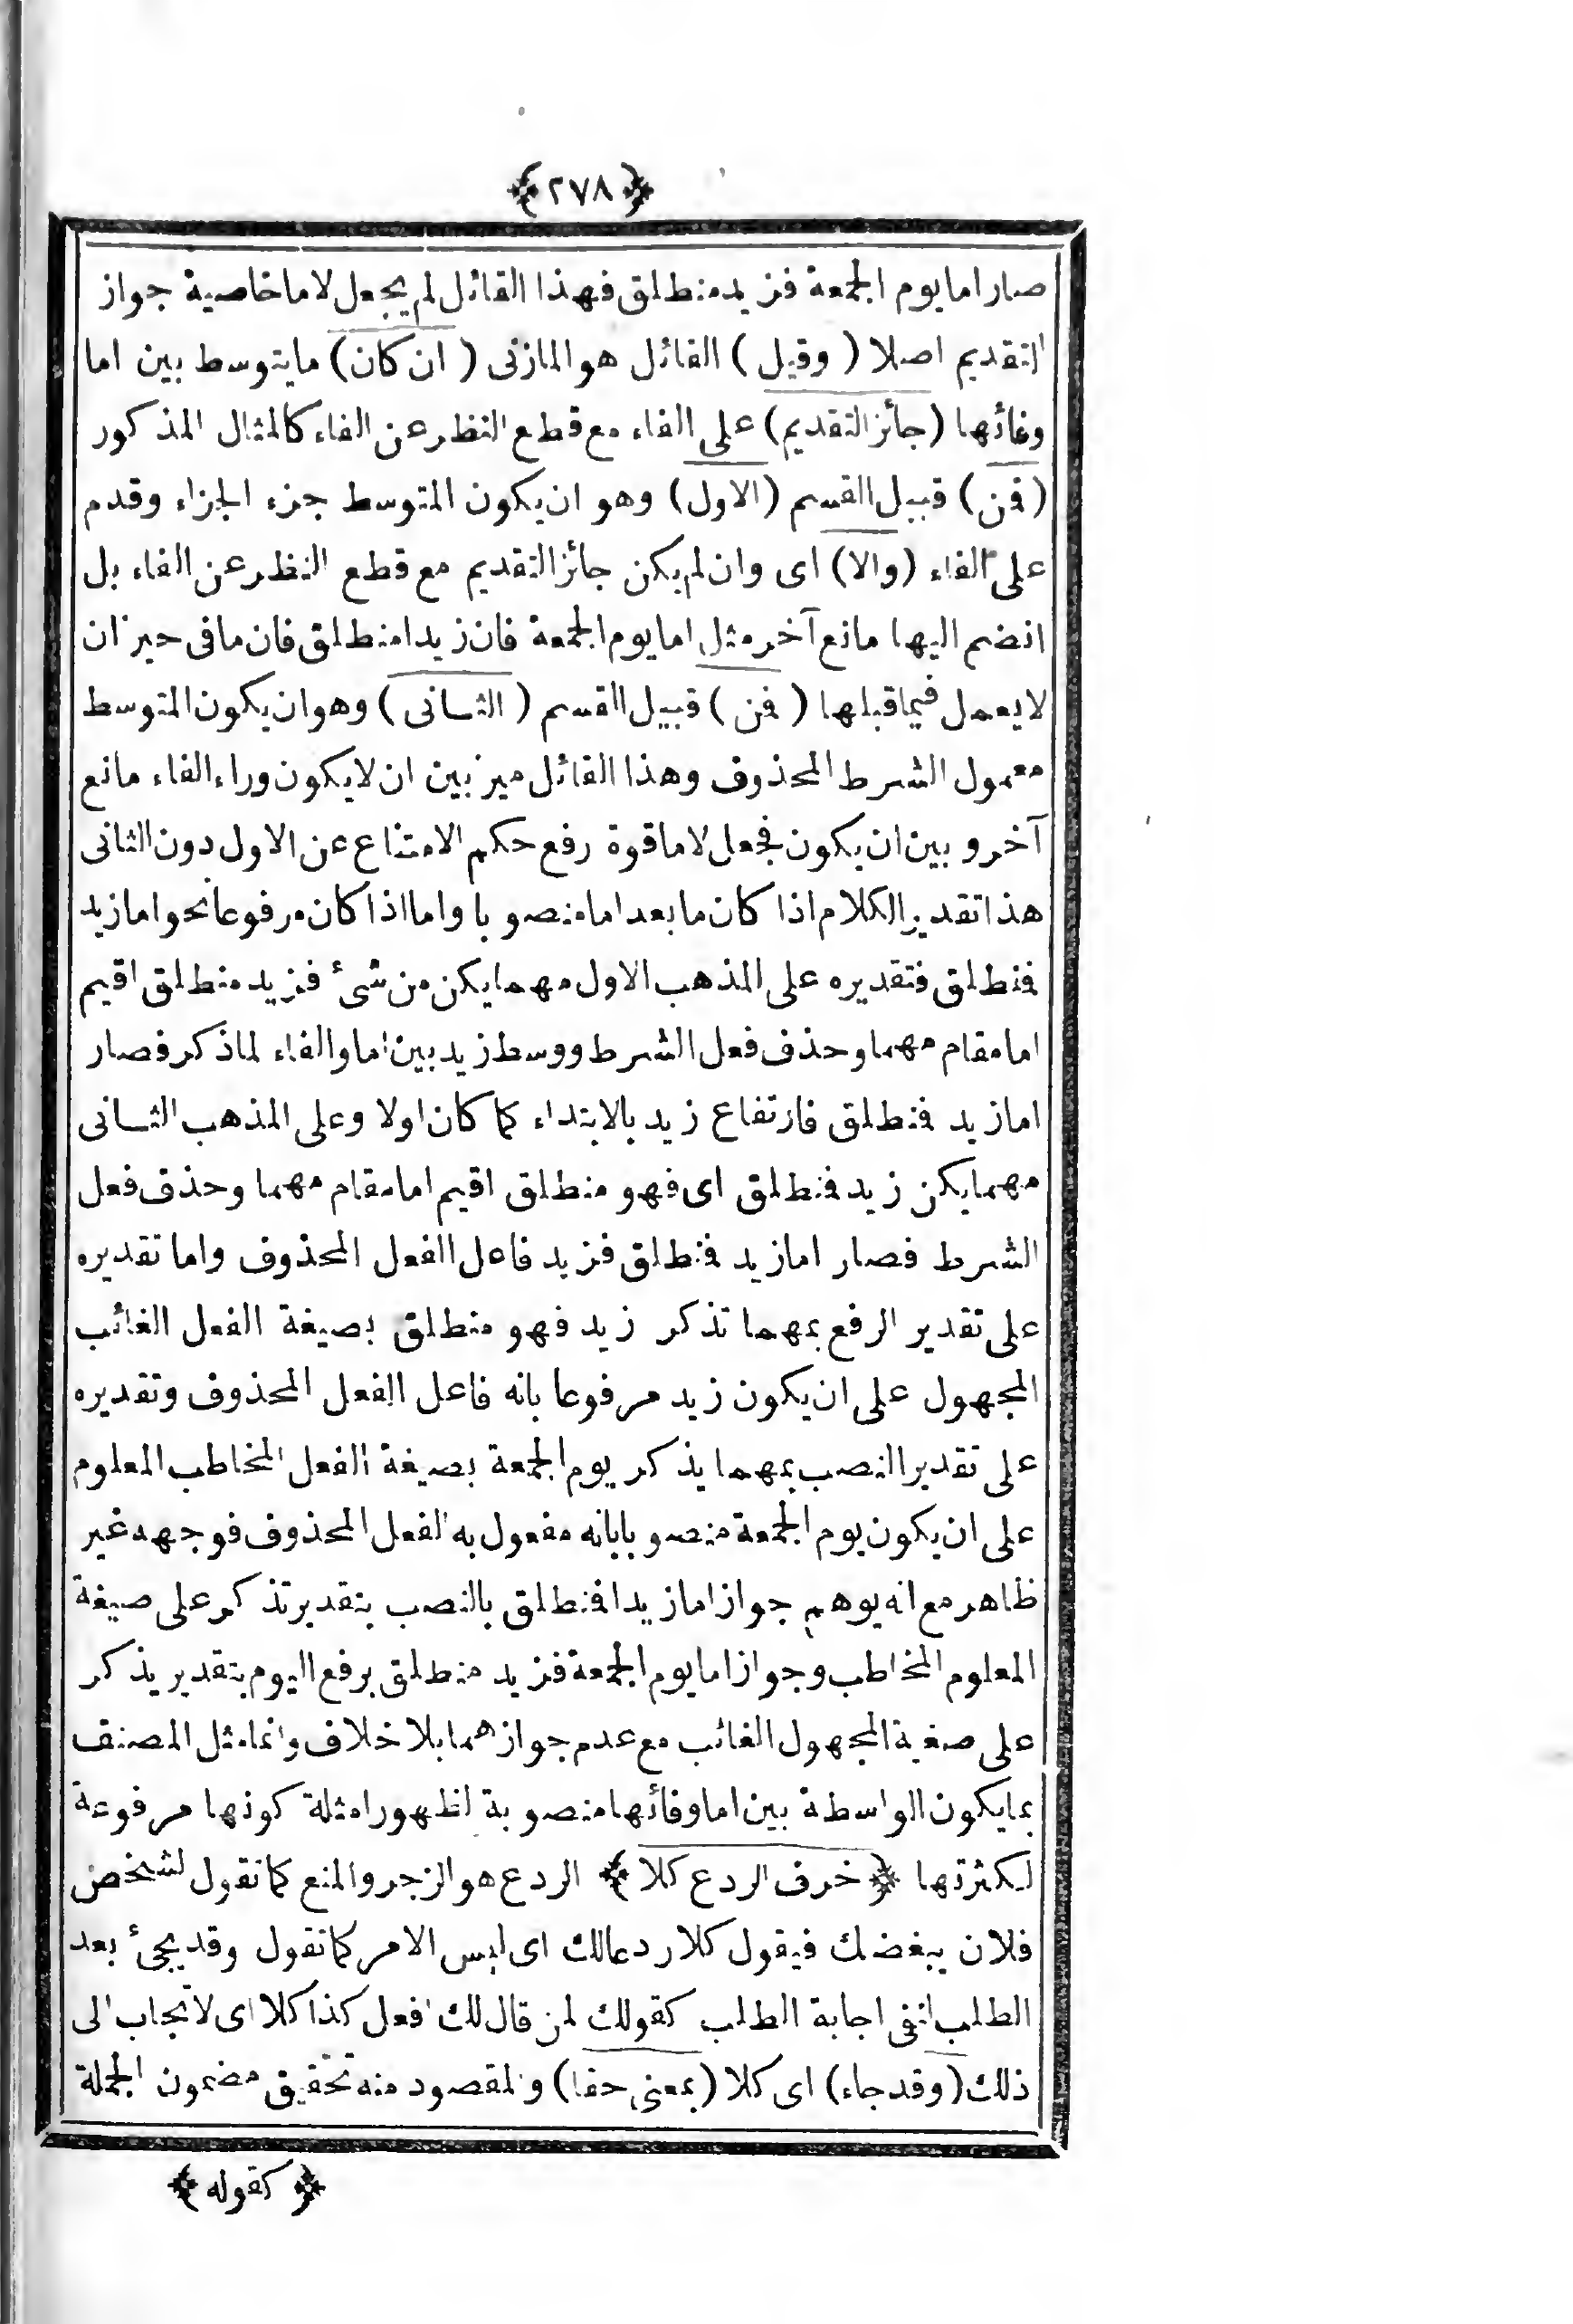 ﴿٢٧٨﴾
صار اما يوم الجمعة فزيد منطلق فهذا القائل لم يجعل لاما خاصية جواز
التقديم اصلا (وقيل) القائل هو المازنى (ان كان) ما يتوسط بين اما
وفائها (جائز التقديم) على الفاء مع قطع النظر عن الفاء كالمثال المذكور
(فن) قبيل القسم (الاول) وهو ان يكون المتوسط جزء الجزاء وقدم
على الفاء (والا) اى وان لم يكن جائز التقديم مع قطع النظر عن الفاء بل
انضم اليها مانع آخر مثل اما يوم الجمعة فان زيدا منطلق فان ما فى حيز ان
لا يعمل فيما قبلها (فن) قبيل القسم (الثانى) وهو ان يكون المتوسط
معمول الشرط المحذوف وهذا القائل ميز بين ان لا يكون وراء الفاء مانع
آخر و بين ان يكون فجعل لاما قوة رفع حكم الامتناع عن الاول دون الثانى
هذا تقدير الكلام اذا كان ما بعد اما منصوبا واما اذا كان مرفوعا نحو اما زيد
فنطلق فتقديره على المذهب الاول مهما يكن من شئ فزيد منطلق اقيم
اما مقام مهما و حذف فعل الشرط ووسط زيد بين اما والفاء لما ذكر فصار
اما زيد فنطلق فارتفاع زيد بالابتداء كما كان اولا وعلى المذهب الثانى
مهما يكن زيد فنطلق اى فهو منطلق اقيم اما مقام مهما وحذف فعل
الشرط فصار اما زيد فنطلق فزيد فاعل الفعل المحذوف واما تقديره
على تقدير الرفع بمهما تذكر زيد فهو منطلق بصيغة الفعل الغائب
المجهول على ان يكون زيد مرفوعا بانه فاعل الفعل المحذوف وتقديره
على تقدير النصب بمهما يذكر يوم الجمعة بصيغة الفعل المخاطب المعلوم
على ان يكون يوم الجمعة منصوبا بانه مفعول به لفعل المحذوف فوجهه غير
ظاهر مع انه يوهم جواز اما زيدا فنطلق بالنصب بتقدير تذكر على صيغة
المعلوم المخاطب وجواز اما يوم الجمعة فزيد منطلق برفع اليوم بتقدير يذكر
على صغية المجهول الغائب مع عدم جوازهما بلا خلاف وانما مثل المصنف
بما يكون الواسطة بين اما وفائها منصوبة لظهور امثلة كونها مرفوعة
لكثرتها ﴿خرف الردع كلا﴾ الردع هو الزجر والمنع كما تقول لشخص
فلان يبغضك فيقول كلا ردعا لك اى ليس الامر كما تقول وقد يجئ بعد
الطلب لنفى اجابة الطلب كقولك لمن قال لك افعل كذا كلا اى لا تجاب الى
ذلك (وقد جاء) اى كلا (بمعنى حقا) والمقصود منه تحقيق مضمون الجملة
﴿كقوله﴾